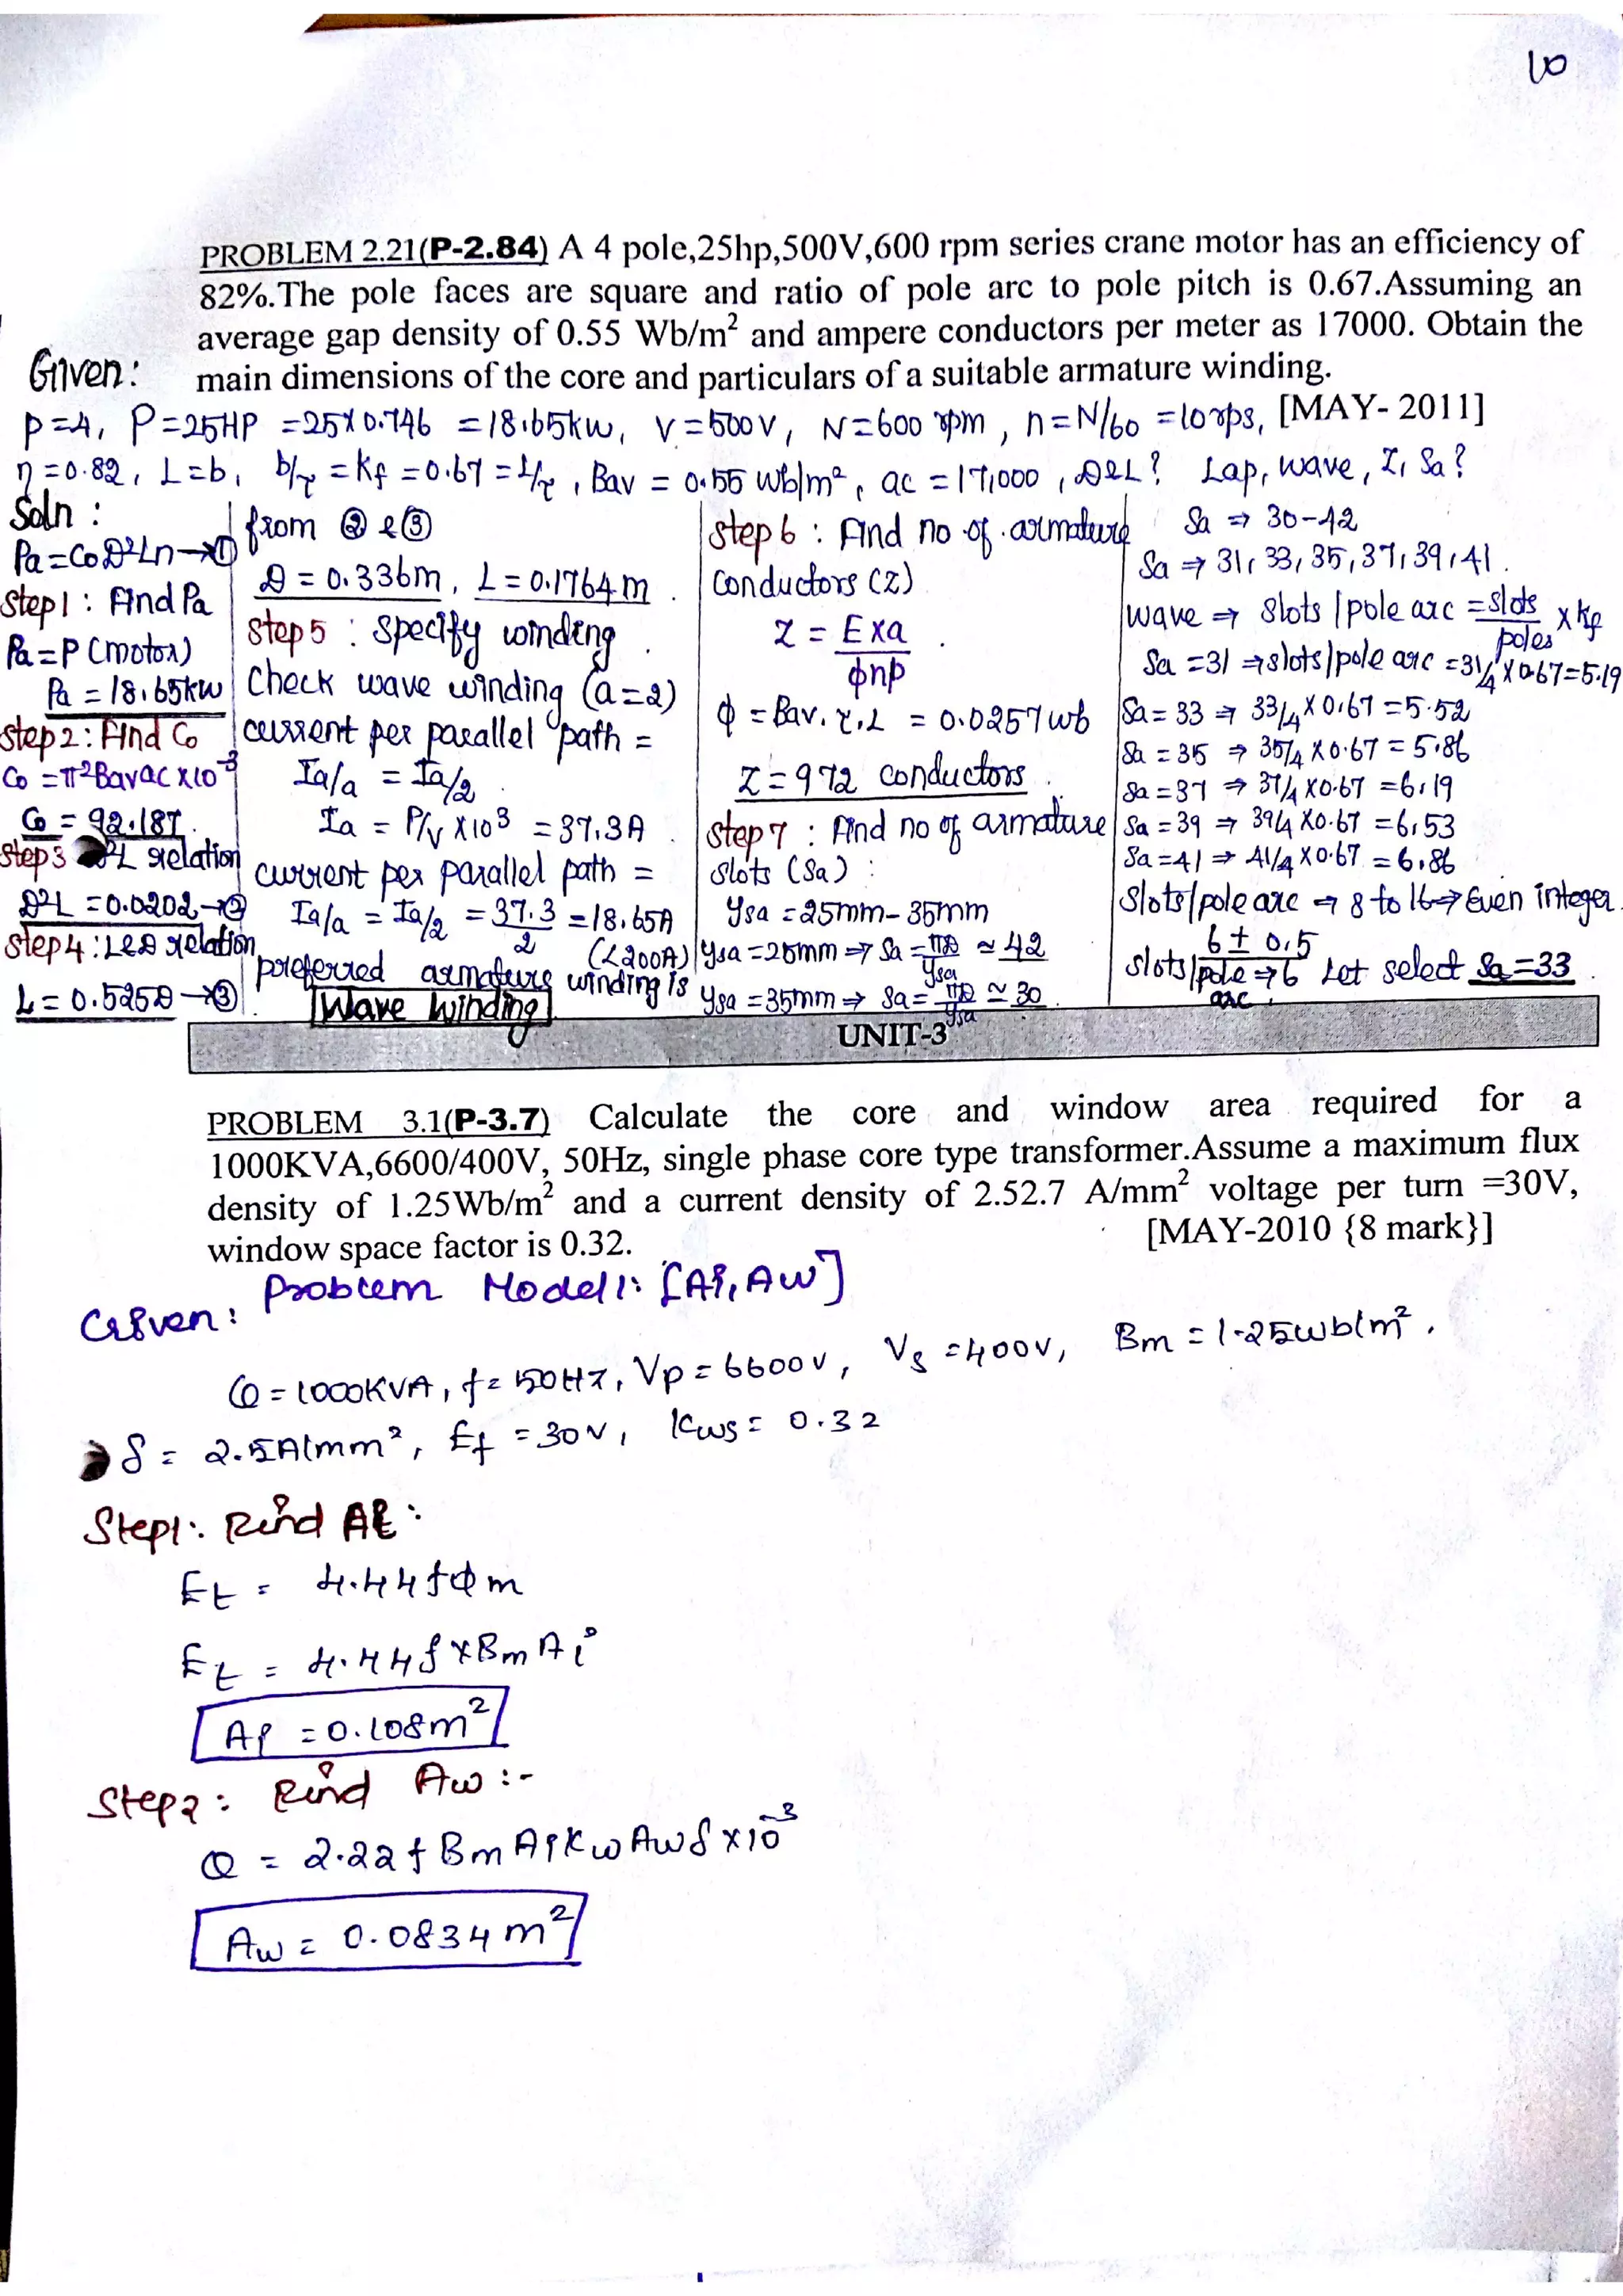 10
PROBLEM 2.21(P-2.84) A 4 pole,25hp,500V,600 rpm series crane motor has an efficiency of
82%.The pole faces are square and ratio of pole arc to pole pitch is 0.67.Assuming an
average gap density of 0.55 Wb/m² and ampere conductors per meter as 17000. Obtain the
main dimensions of the core and particulars of a suitable armature winding.
[MAY- 2011]
Given:
p=4, P=25HP =25x0.746 =18.65kw, V=500V, N=600 rpm, n=N/60 =10rps,
η=0.82, L=b, b/τ =Kf =0.67 =L/τ, Bav = 0.55 wb/m², ac =17,000, D&L? Lap, wave, Z, Sa?
Soln :
Pa=CoD²Ln→①
Step1 : Find Pa
Pa=P (motor)
Pa = 18.65kw
Step2: Find Co
Co =π²Bavac x10⁻³
Co = 92.187
Step3 D²L relation
D²L =0.0202→②
Step4: L&D relation
L= 0.525D→③
from ② & ③
D = 0.336m, L=0.1764m
Step5 : Specify winding
Check wave winding (a=2)
current per parallel path =
Ia/a = Ia/2
Ia = P/V x10³ =37.3A
current per parallel path =
Ia/a = Ia/2 = 37.3/2 =18.65A
(<200A)
preferred armature winding is
Wave winding
Step6 : Find no of armature
Conductors (Z)
Z = Exa/φnp
φ =Bav.τ.L = 0.0257wb
Z=972 conductors
Step7 : Find no of armature
slots (Sa) :
Ysa =25mm-35mm
Ysa =25mm ⇒ Sa =πD/Ysa ≃ 42
Ysa =35mm ⇒ Sa= πD/Ysa ≃ 30
Sa ⇒ 30-42
Sa ⇒ 31, 33, 35, 37, 39, 41.
Wave ⇒ Slots/pole arc =slots/poles x Kf
Sa =31 ⇒slots/pole arc =31/4 x0.67=5.19
Sa= 33 ⇒ 33/4 x 0.67 =5.52
Sa =35 ⇒ 35/4 x0.67 =5.86
Sa =37 ⇒ 37/4 x0.67 =6.19
Sa =39 ⇒ 39/4 x0.67 =6.53
Sa =41 ⇒ 41/4 x0.67 =6.86
Slots/pole arc ⇒ 8 to 16⇒ Even integer
6 ± 0.5
slots/pole arc ⇒6 Let select Sa=33
UNIT-3
PROBLEM 3.1(P-3.7) Calculate the core and window area required for a
1000KVA,6600/400V, 50Hz, single phase core type transformer.Assume a maximum flux
density of 1.25Wb/m² and a current density of 2.52.7 A/mm² voltage per turn =30V,
window space factor is 0.32.
[MAY-2010 {8 mark}]
Problem Model 1: [Ai, Aw]
Given:
Q = 1000KVA, f= 50Hz, Vp = 6600v, Vs =400v, Bm = 1.25wb/m².
δ = 2.5A/mm², Et =30v, Kws = 0.32
Step1: Find Ai:
Et = 4.44fφm
Et = 4.44f xBmAi
Ai =0.108m²
Step2: Find Aw :-
Q = 2.22f Bm AiKwAwδ x10⁻³
Aw = 0.0834m²